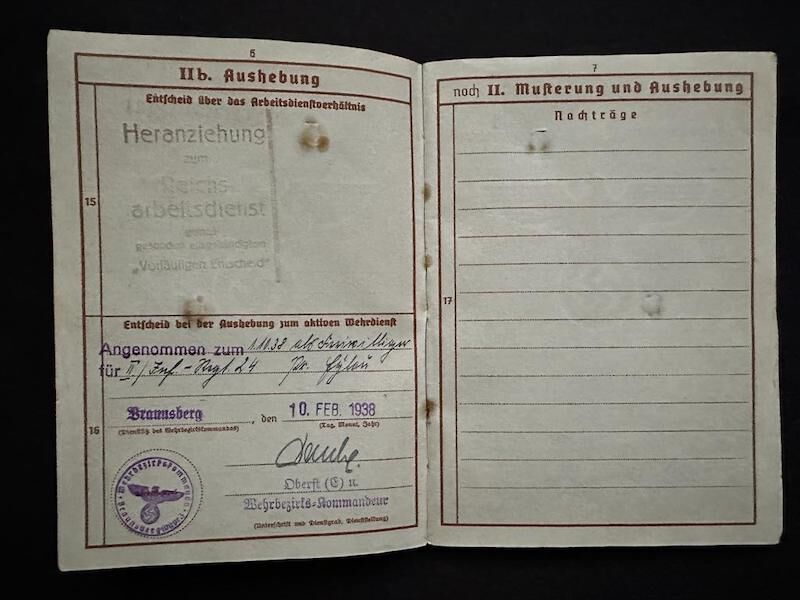 6
IIb. Aushebung
15
Entscheid über das Arbeitsdienstverhältnis
Heranziehung
zum
Reichs-
arbeitsdienst
gemäß
gesondert ausgehändigtem
"Vorläufigen Entscheid"
Entscheid bei der Aushebung zum aktiven Wehrdienst
16
Angenommen zum 1.10.38 als Freiwilliger
für II./Inf.-Regt. 24 Pr. Eylau
Braunsberg, den 10. FEB. 1938
(Dienstsitz des Wehrbezirkskommandos) (Tag, Monat, Jahr)
Oberst (E) u.
Wehrbezirks-Kommandeur
(Unterschrift und Dienstgrad, Dienststellung)
Wehrbezirkskommando
7
noch II. Musterung und Aushebung
Nachträge
17